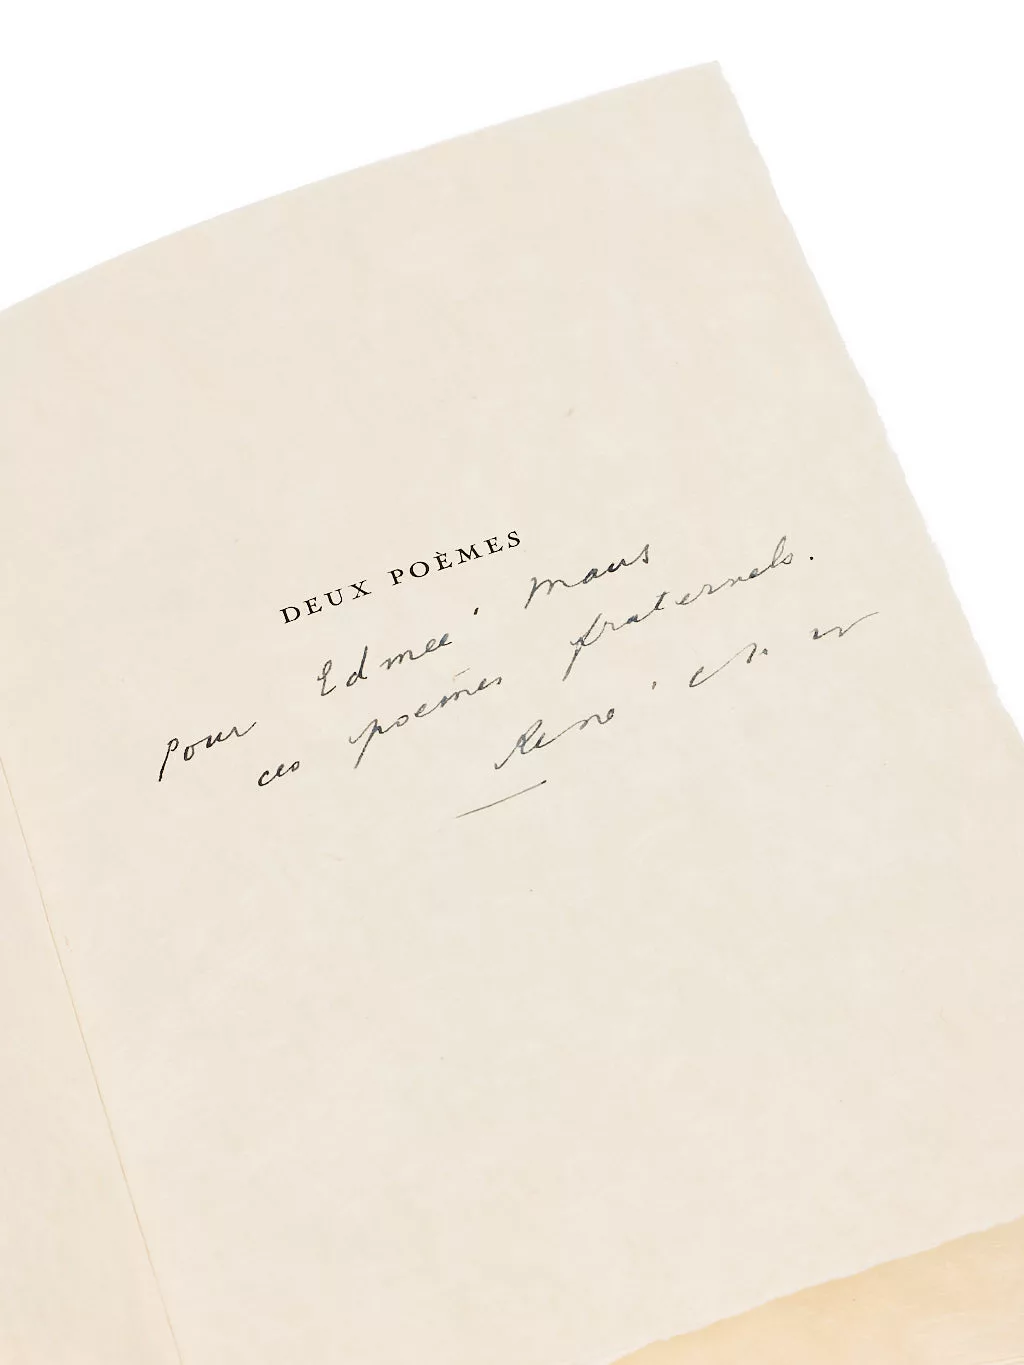 DEUX POÈMES
pour Edmée Maus
ces poèmes fraternels.
René Char